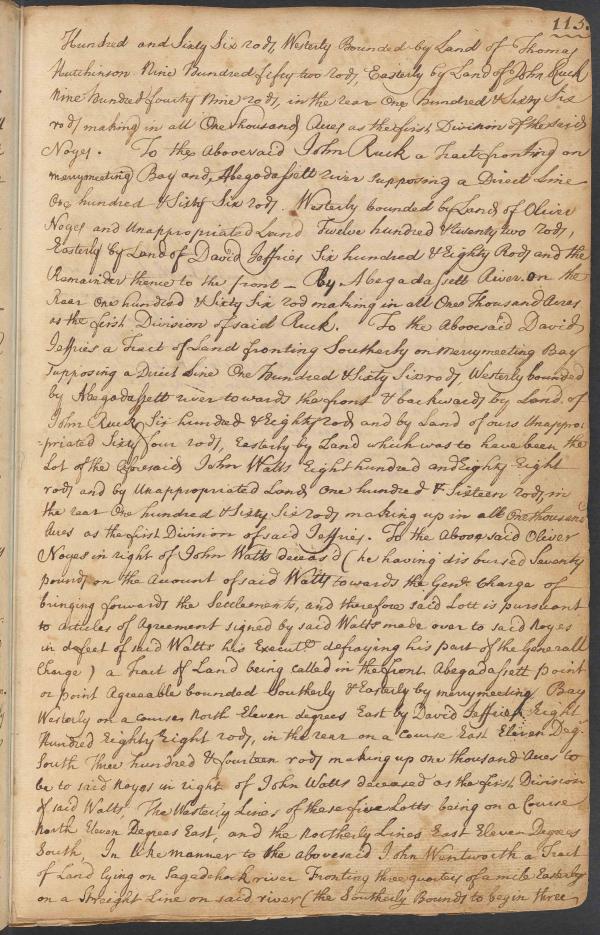 115.
Hundred and Sixty Six rods, Westerly Bounded by Land of Thomas
Hutchinson Nine Hundred fifty two rods, Easterly by Land of John Ruck
Nine hundred fourty Nine rods, in the rear One Hundred & Sixty Six
rods making in all One thousand Acres as the first Division of the said
Noyes. To the abovesaid John Ruck a Tract fronting on
merrymeeting Bay and Abegadassett river supposing a Direct Line
One hundred & Sixty Six rods. Westerly bounded by Land of Oliver
Noyes and Unappropriated Land Twelve hundred & twenty two rods,
Easterly by Land of David Jeffries Six hundred & Eighty Rods and the
Remainder thence to the front - by Abegadassett River on the
Rear One hundred & Sixty Six rod making in all One Thousand Acres
as the first Division of said Ruck. To the Abovesaid David
Jeffries a Tract of Land fronting Southerly on Merrymeeting Bay
Supposing a Direct Line One hundred & Sixty Six rods, Westerly bounded
by Abegodassett river towards the front & backwards by Land of
John Ruck Six hundred & Eighty rods and by Land of ours Unappro-
-priated Sixty four rods, Easterly by Land which was to have been the
Lot of the Aforesaid John Watts Eight hundred and Eighty Eight
rods and by Unappropriated Land One hundred & Sixteen rods, in
the rear One hundred & Sixty Six rods making up in all One thousand
Acres as the first Division of said Jeffries. To the Above said Oliver
Noyes in right of John Watts deceasd (he having disbursed Seventy
pounds on the Account of said Watts towards the Genl. Charge of
bringing forwards the Settlements, and therefore said Lott is pursuant
to articles of Agreement signed by said Watts made over to said Noyes
in defect of said Watts his Execut.rs defraying his part of the Generall
Charge) a Tract of Land being called in the front Abegadassett point
or point Agreeable bounded Southerly & Easterly by merrymeeting Bay
Westerly on a course North Eleven degrees East by David Jeffries Eight
Hundred Eighty Eight rods, in the rear on a Course East Eleven Deg.s
South Three hundred & fourteen rods making up one thousand Acres to
be to said Noyes in right of John Watts deceased as the first Division
of said Watts, The Westerly Lines of these five Lotts being on a Course
North Eleven Degrees East, and the Northerly Lines East Eleven Degrees
South, In like manner to the abovesaid John Wentworth a Tract
of Land lying on Sagadehock river Fronting three quarters of a mile Easterly
on a Streight Line on said river (the Southerly Bounds to begin three